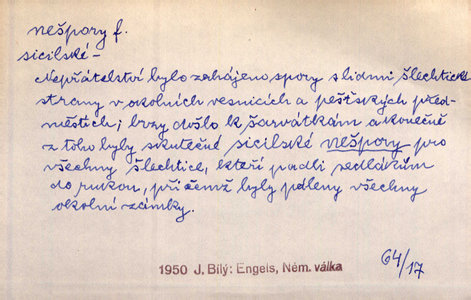 nešpory f.
sicilské –
Nepřátelství bylo zahájeno spory s lidmi šlechtické
strany v okolních vesnicích a pešťských před-
městích; brzy došlo k šarvátkám a konečně
z toho byly skutečné sicilské nešpory pro
všechny šlechtice, kteří padli sedlákům
do rukou, při čemž byly páleny všechny
okolní zámky.
64/17
1950 J. Bílý: Engels, Něm. válka